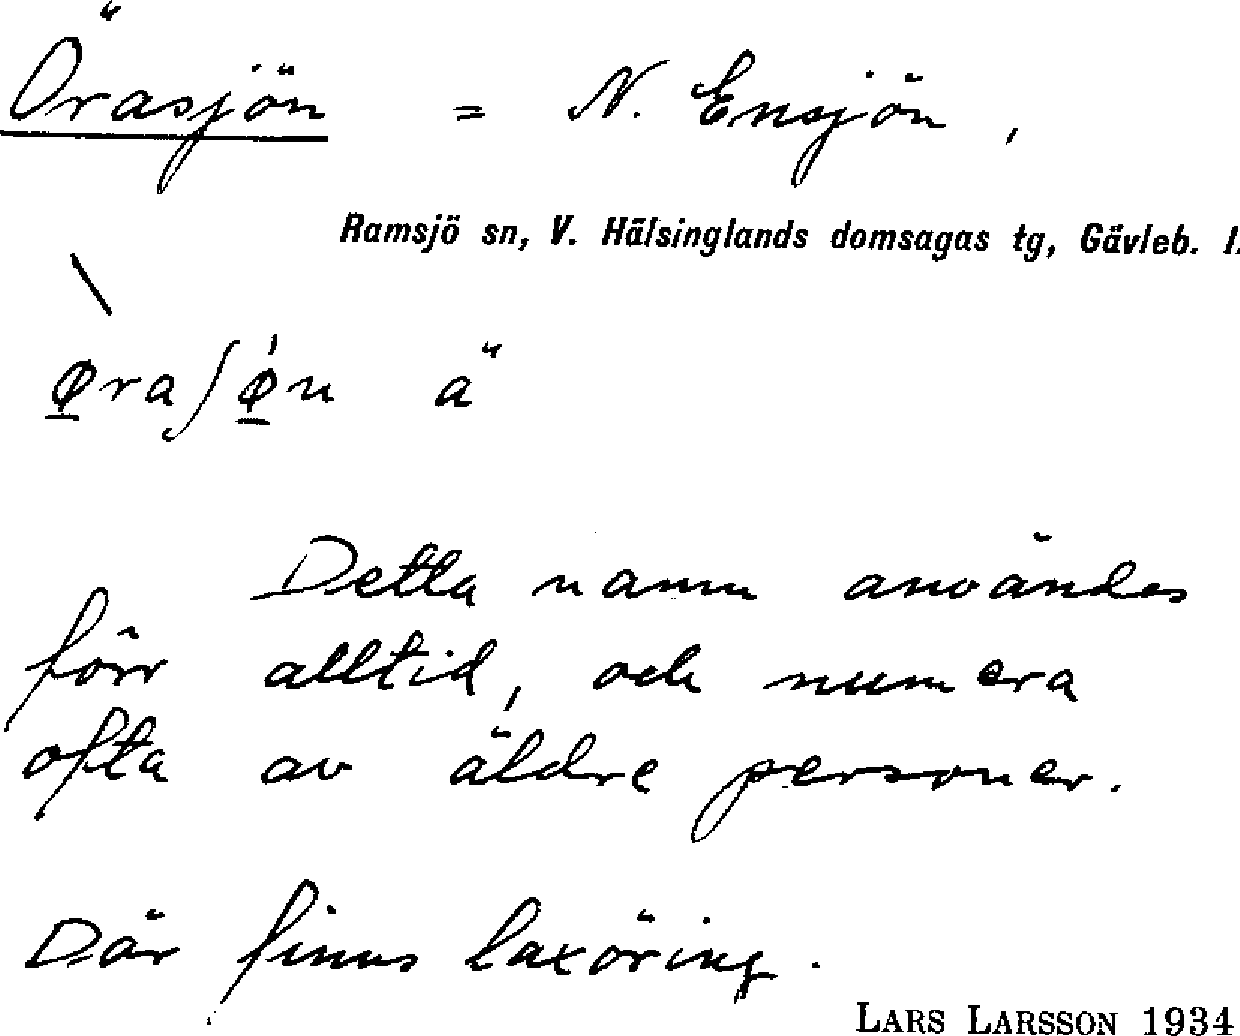 Örasjön = N. Ensjön,
Ramsjö sn, V. Hälsinglands domsagas tg, Gävleb. l.
ø̲̀raʃǿ̲n ä
Detta namn användes
förr alltid, och numera
ofta av äldre personer.
Där finns laxöring.
LARS LARSSON 1934